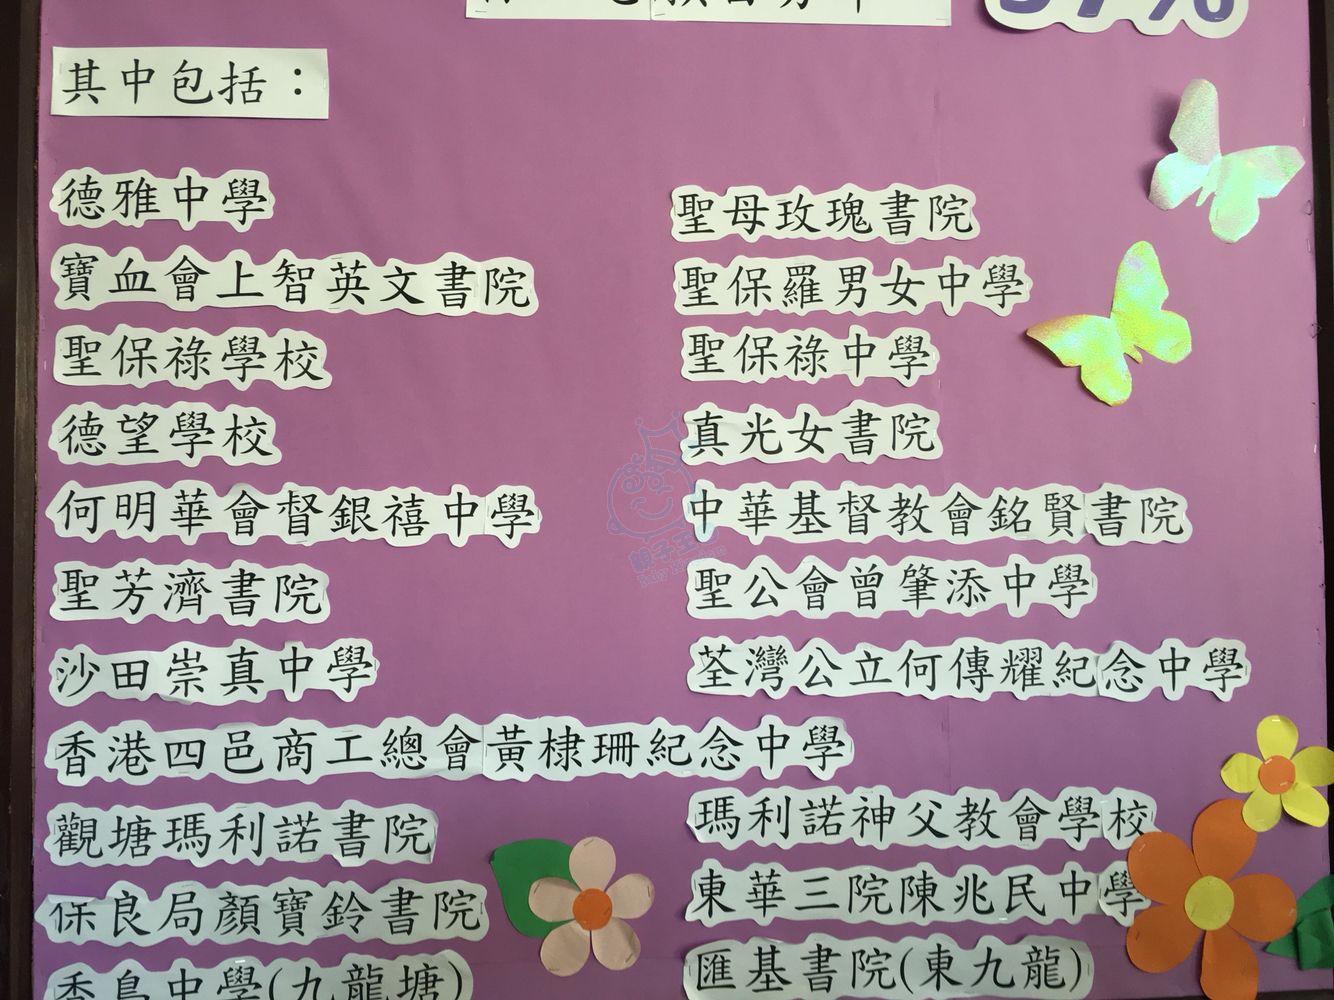 其中包括：
德雅中學
聖母玫瑰書院
寶血會上智英文書院
聖保羅男女中學
聖保祿學校
聖保祿中學
德望學校
真光女書院
何明華會督銀禧中學
中華基督教會銘賢書院
聖芳濟書院
聖公會曾肇添中學
沙田崇真中學
荃灣公立何傳耀紀念中學
香港四邑商工總會黃棣珊紀念中學
觀塘瑪利諾書院
瑪利諾神父教會學校
保良局顏寶鈴書院
東華三院陳兆民中學
香島中學(九龍塘)
匯基書院(東九龍)